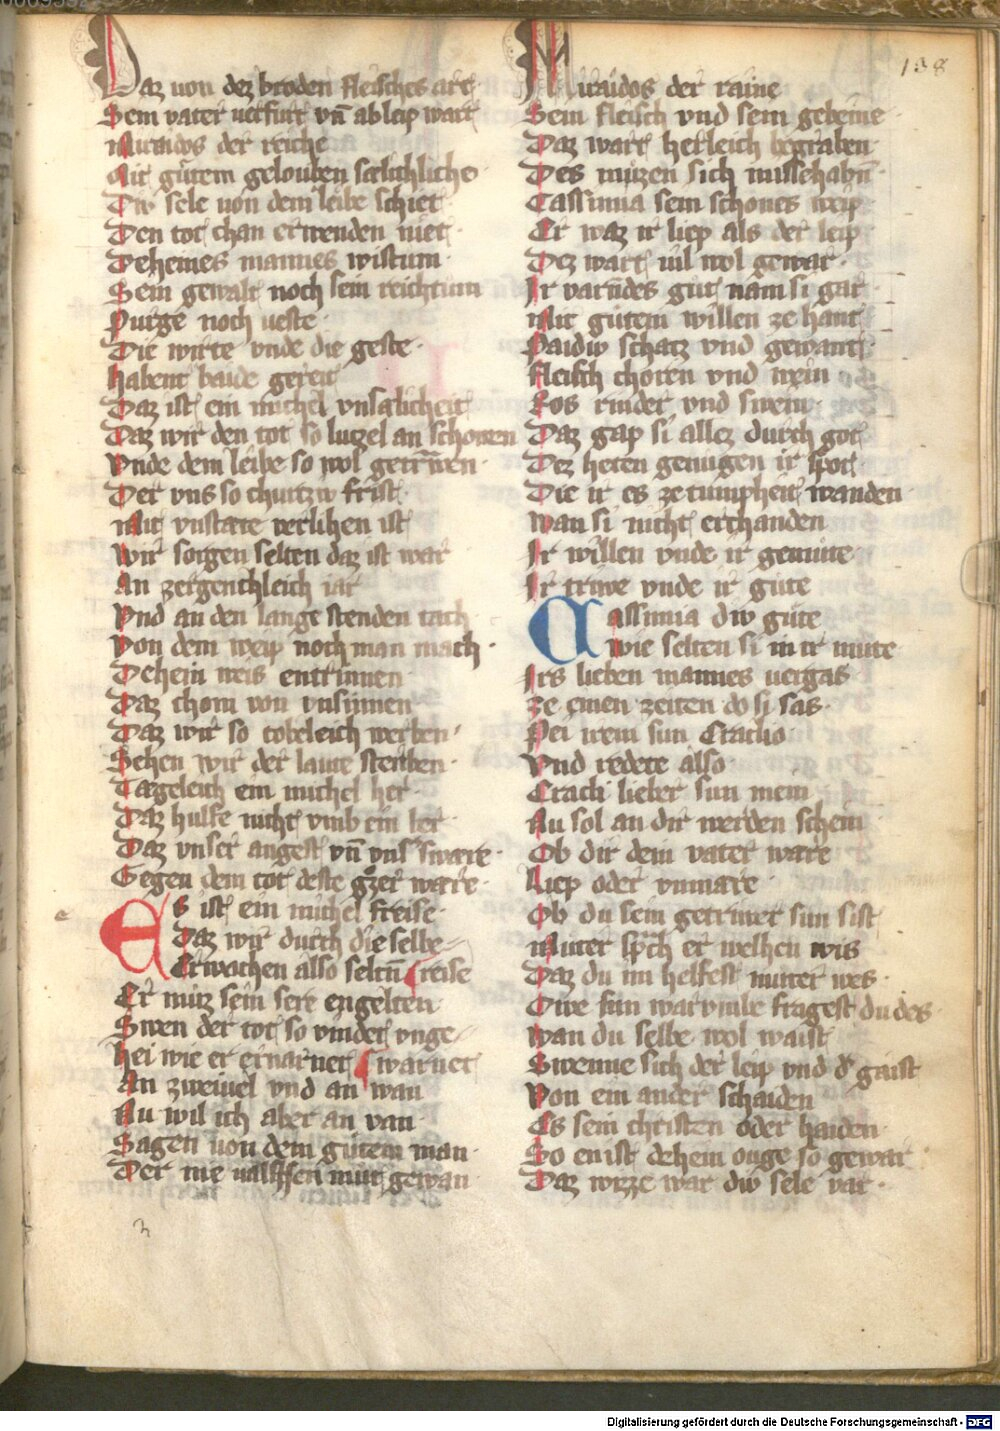 138
Daz von dez broden fleisches art
Sem vater uerfurt vn̄ ab leip wart
Miraidos der reiche
Mit gůtem gelouben sælichliche
Div sele von dem leibe schiet
Den tot chan erwenden niet
Deheines mannes wistum
Sein gewalt noch sein reichtum
Purge noch ueste
Die wirte vnde die geste
habent baide gereit
Daz ist ein michel vnsælicheit
Daz wir den tot so lutzel an schowen
Vnde dem leibe so wol getrŵen
Der vns so churtziv frist
Mit vnstæte verlihen ist
Wir sorgen selten daz ist war
An zergenchleich iar
Vnd an den lange stenden tach
Von dem weip noch man mach
Dehein weis entrinnen
Daz chom von vnsinnen
Daz wir so tobeleich werben
Sehen wir der laute sterben
Tægeleich ein michel her
Daz hulfe nicht vmb ein ber
Daz vnser angest vn̄ vnsˀ swære
Gegen dem tot deste grˀzer wære
Es ist ein michel freise
Daz wir durch die selbe
Erwachen also seltn̄ reise
Er můz sein sere engelten
Swen der tot so vindet vnge
hei wie er ernarnet warnet
An zweiuel vnd an wan
Nu wil ich aber an van
Sagen von dem gůtem man
Der nie valssen můt gewan
Miraidos der raine
Sein fleisch vnd sein gebeine
Daz wart herleich begraben
Des můzen sich missehabn̄
Cassinia sein schones weip
Er waz ir liep als der leip
Dez wart vil wol gewar
Ir varndes gůt nam si gar
Mit gůtem willen ze hant
Paidiv schatz vnd gewant
Fleisch choren vnd wein
Ros rinder vnd swein
Daz gap si allez durch got
Dez heten genůgen ir spot
Die ir es ze tumpheit wanden
Wan si nicht erchanden
Ir willen vnde ir gemůte
Ir triwe vnde ir gůte
Cassinia div gůte
Wie selten si in ir můte
Irs lieben mannes uergas
Ze einen zeiten do si sas
Pei irem sun Eraclio
Vnd redete also
Eracli lieber sun mein
Nu sol an dir werden schein
Ob dir dein vater wære
Liep oder vnmære
Ob du sein getriwer sun sist
Můter sprˀch er welhen wis
Daz du im helfest můter wes
Owe sun war vmbe fragest du des
Wan du selbe wol waist
Swenne sich der leip vnd dˀ gaist
Von ein ander schaiden
Es sein christen oder haiden
So enist dehein ouge so gewar
Daz wizze war div sele var
Digitalisierung gefördert durch die Deutsche Forschungsgemeinschaft - DFG